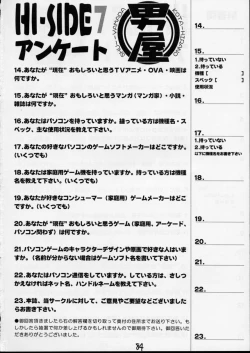 HI-SIDE7
アンケート
男屋
14.あなたが“現在”おもしろいと思うTVアニメ・OVA・映画は
何ですか。
15.あなたが“現在”おもしろいと思うマンガ(マンガ家)・小説・
雑誌は何ですか。
16.あなたはパソコンを持っていますか。持っている方は機種名・ス
ペック、主な使用状況を教えて下さい。
17.あなたの好きなパソコンのゲームソフトメーカーはどこですか。
(いくつでも)
18.あなたは家庭用ゲーム機を持っていますか。持っている方は機種
名を教えて下さい。(いくつでも)
19.あなたが好きなコンシューマー(家庭用)ゲームメーカーはどこ
ですか。(いくつでも)
20.あなたが“現在”おもしろいと思うゲーム(家庭用、アーケード、
パソコン問わず)は何ですか。
21.パソコンゲームのキャラクターデザインや原画で好きな人はいま
すか。(名前が分からない場合はゲームソフト名を書いて下さい)
22.あなたはパソコン通信をしていますか。している方は、さしつ
かえなければネット名、ハンドルネームを教えて下さい。
23.本誌、当サークルに対して、ご意見やご要望などございましたら
お書き下さい。
14.
15.
1.持っていない
2.持っている
機種 [ ]
スペック [ ]
使用状況
16.
17.
1.持っていない
2.持っている
18.
19.
20.
21.
22.
23.
34